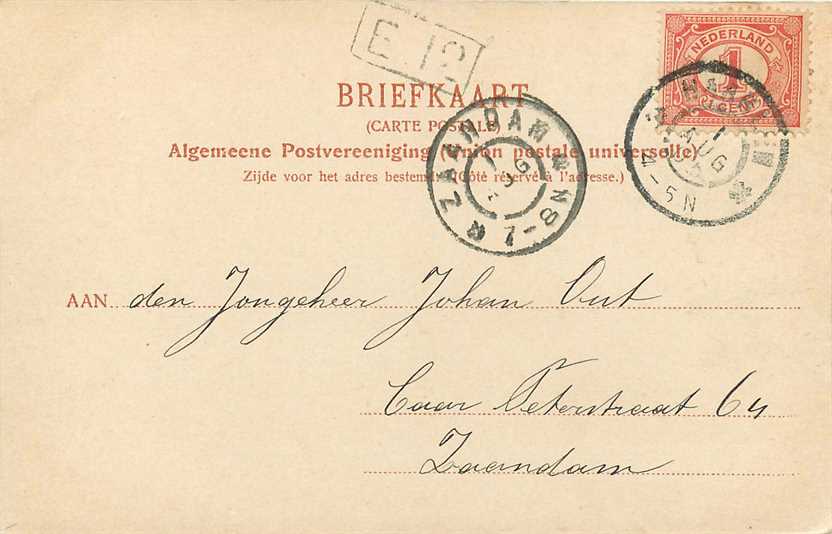 E 12
NEDERLAND
1
CENT
BRIEFKAART
(CARTE POSTALE)
Algemeene Postvereeniging (Union postale universelle)
Zijde voor het adres bestemd. (Côté réservé à l'adresse.)
AUG
4-5N
ZAANDAM
7-8N
AAN den Jongeheer Johan Out
Czaar Peterstraat 64
Zaandam